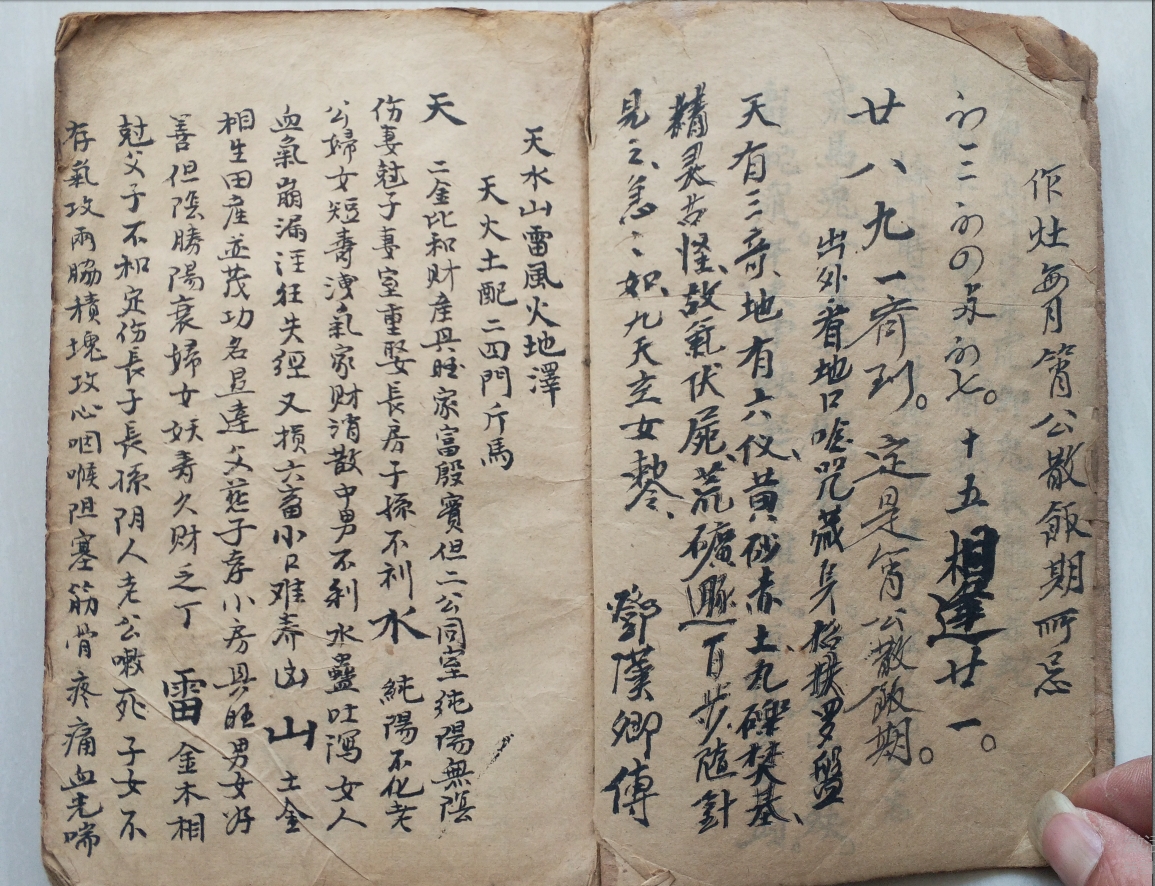 作灶每月宵公散飯期所忌
初三初四并初七。十五相逢廿一。
廿八九一齊到。定是宵公散飯期。
出外看地口唸咒藏身 罗盤
天有三奇、地有六仪、黄砂赤土、瓦礫焚基、
精灵古怪、故氣伏屍、荒礦 百步、隨針
見之、急〻如、九天玄女勅令、鄧漢卿傳
天水山雷風火地澤
天火土配二四門斤馬
天 二金比和財產興旺家富殷實但二公同室純陽無陰
伤妻尅子妻室重娶長房子孫不利 水 純陽不化老
公婦女短壽洩氣家财消散中男不利水蠱吐瀉女人
血氣崩漏 狂失經又損六畜小口难养凶 山 土金
相生田產並茂功名显達父慈子孝小房興旺男女好
善但陰勝陽衰婦女妖壽久财乏丁 雷 金木相
尅父子不和定伤長子長孫阴人老公嗽死子女不
存氣攻兩脇積塊攻心咽喉阻塞筋骨疼痛血光喘